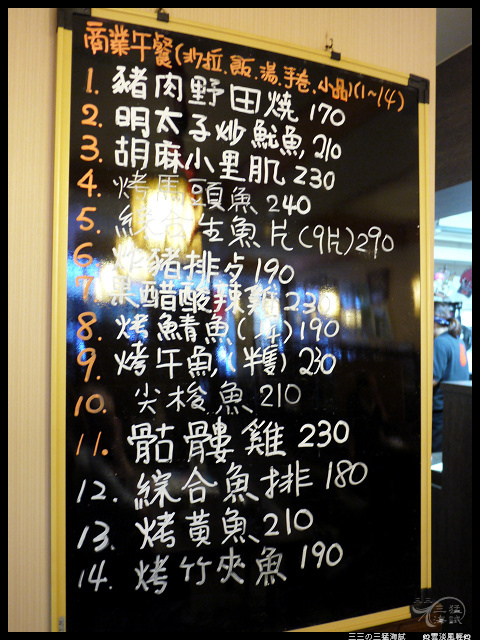 商業午餐(沙拉.飯.湯.手卷.小品)(1~14)
1. 豬肉野田燒 170
2. 明太子炒魷魚 210
3. 胡麻小里肌 230
4. 烤馬頭魚 240
5. 綜合生魚片(9片)290
6. 炸豬排 190
7. 黑醋酸辣雞 230
8. 烤鯖魚( )190
9. 烤午魚(半隻) 230
10. 尖梭魚 210
11. 骷髏雞 230
12. 綜合魚排 180
13. 烤黃魚 210
14. 烤竹夾魚 190
三三の三猛海賊 雲淡風輕